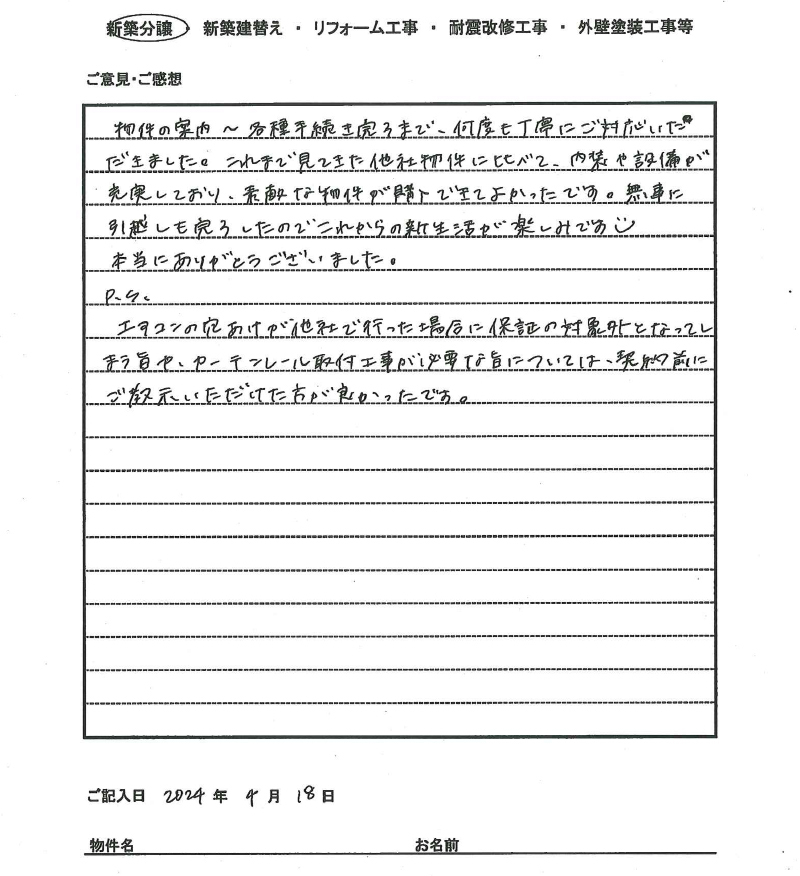 新築分譲 ・ 新築建替え ・ リフォーム工事 ・ 耐震改修工事 ・ 外壁塗装工事等
ご意見・ご感想
物件の案内～各種手続き完了まで、何度も丁寧にご対応いた
だきました。これまで見てきた他社物件に比べて、内装や設備が
充実しており、素敵な物件が購入できてよかったです。無事に
引越しも完了したのでこれからの新生活が楽しみです
本当にありがとうございました。
P.S.
エアコンの穴あけが他社で行った場合に保証の対象外となってし
まう旨や、カーテンレール取付工事が必要な旨については、契約前に
ご教示いただけた方が良かったです。
ご記入日 2024年 4月 18日
物件名 お名前